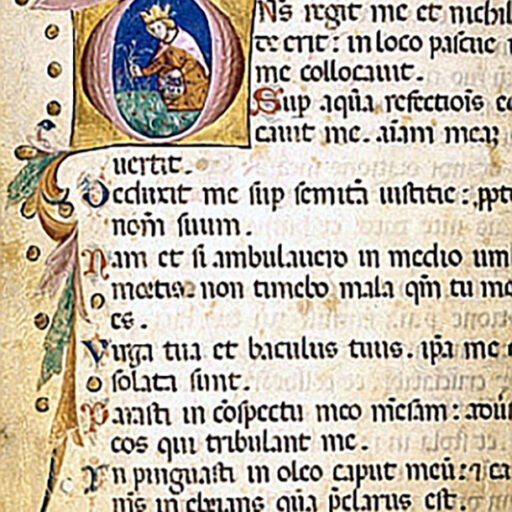 Ns regit me et nichil
te erit: in loco pascue
me collocauit.
Sup aqua refectiois
cauit me. aiam mea
uertit.
Deduxit me sup semita iustitie: ppt
nom suum.
Nam et si ambulauero in medio um
mortis. non timebo mala qm tu me
es.
Virga tua et baculus tuus. ipa me
solata sunt.
Parasti in cospectu meo mesam: adu
eos qui tribulant me.
In pinguasti in oleo caput meu: ⁊ ca
nis in ebrians qua pclarus est.